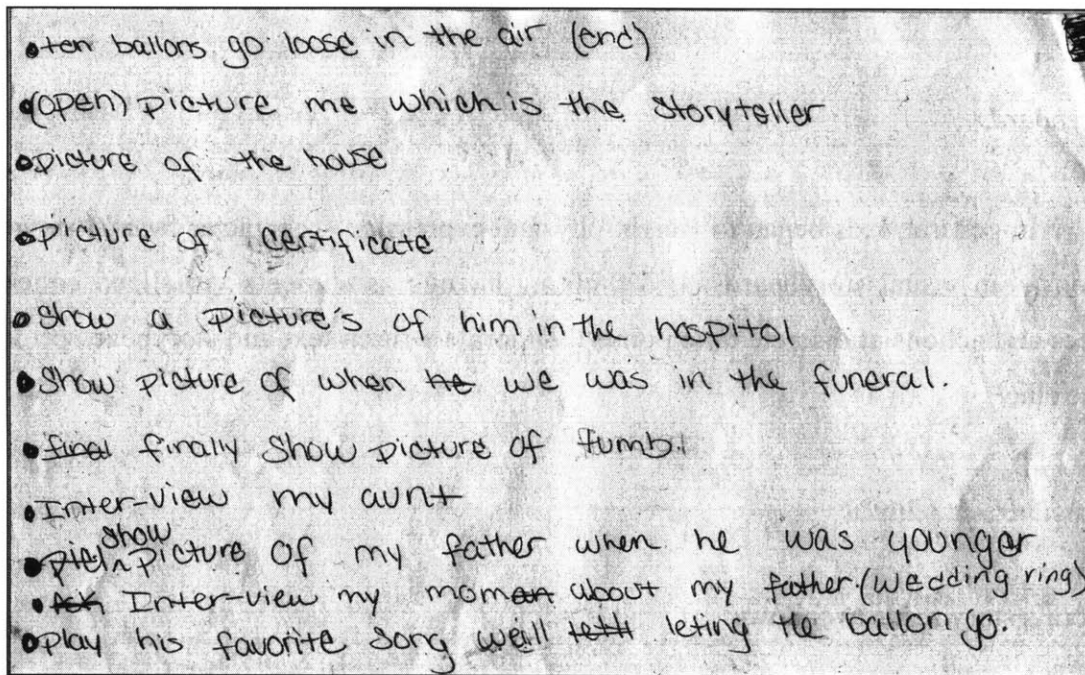 • ten ballons go loose in the air (end)
• (open) picture me which is the storyteller
• picture of the house
• picture of certificate
• Show a picture's of him in the hospitol
• Show picture of when he we was in the funeral.
• final finally Show picture of
• Inter-view my aunt
• show picture of my father when he was younger
• Inter-view my mom about my father (wedding ring)
• play his favorite song weill leting the ballon go.